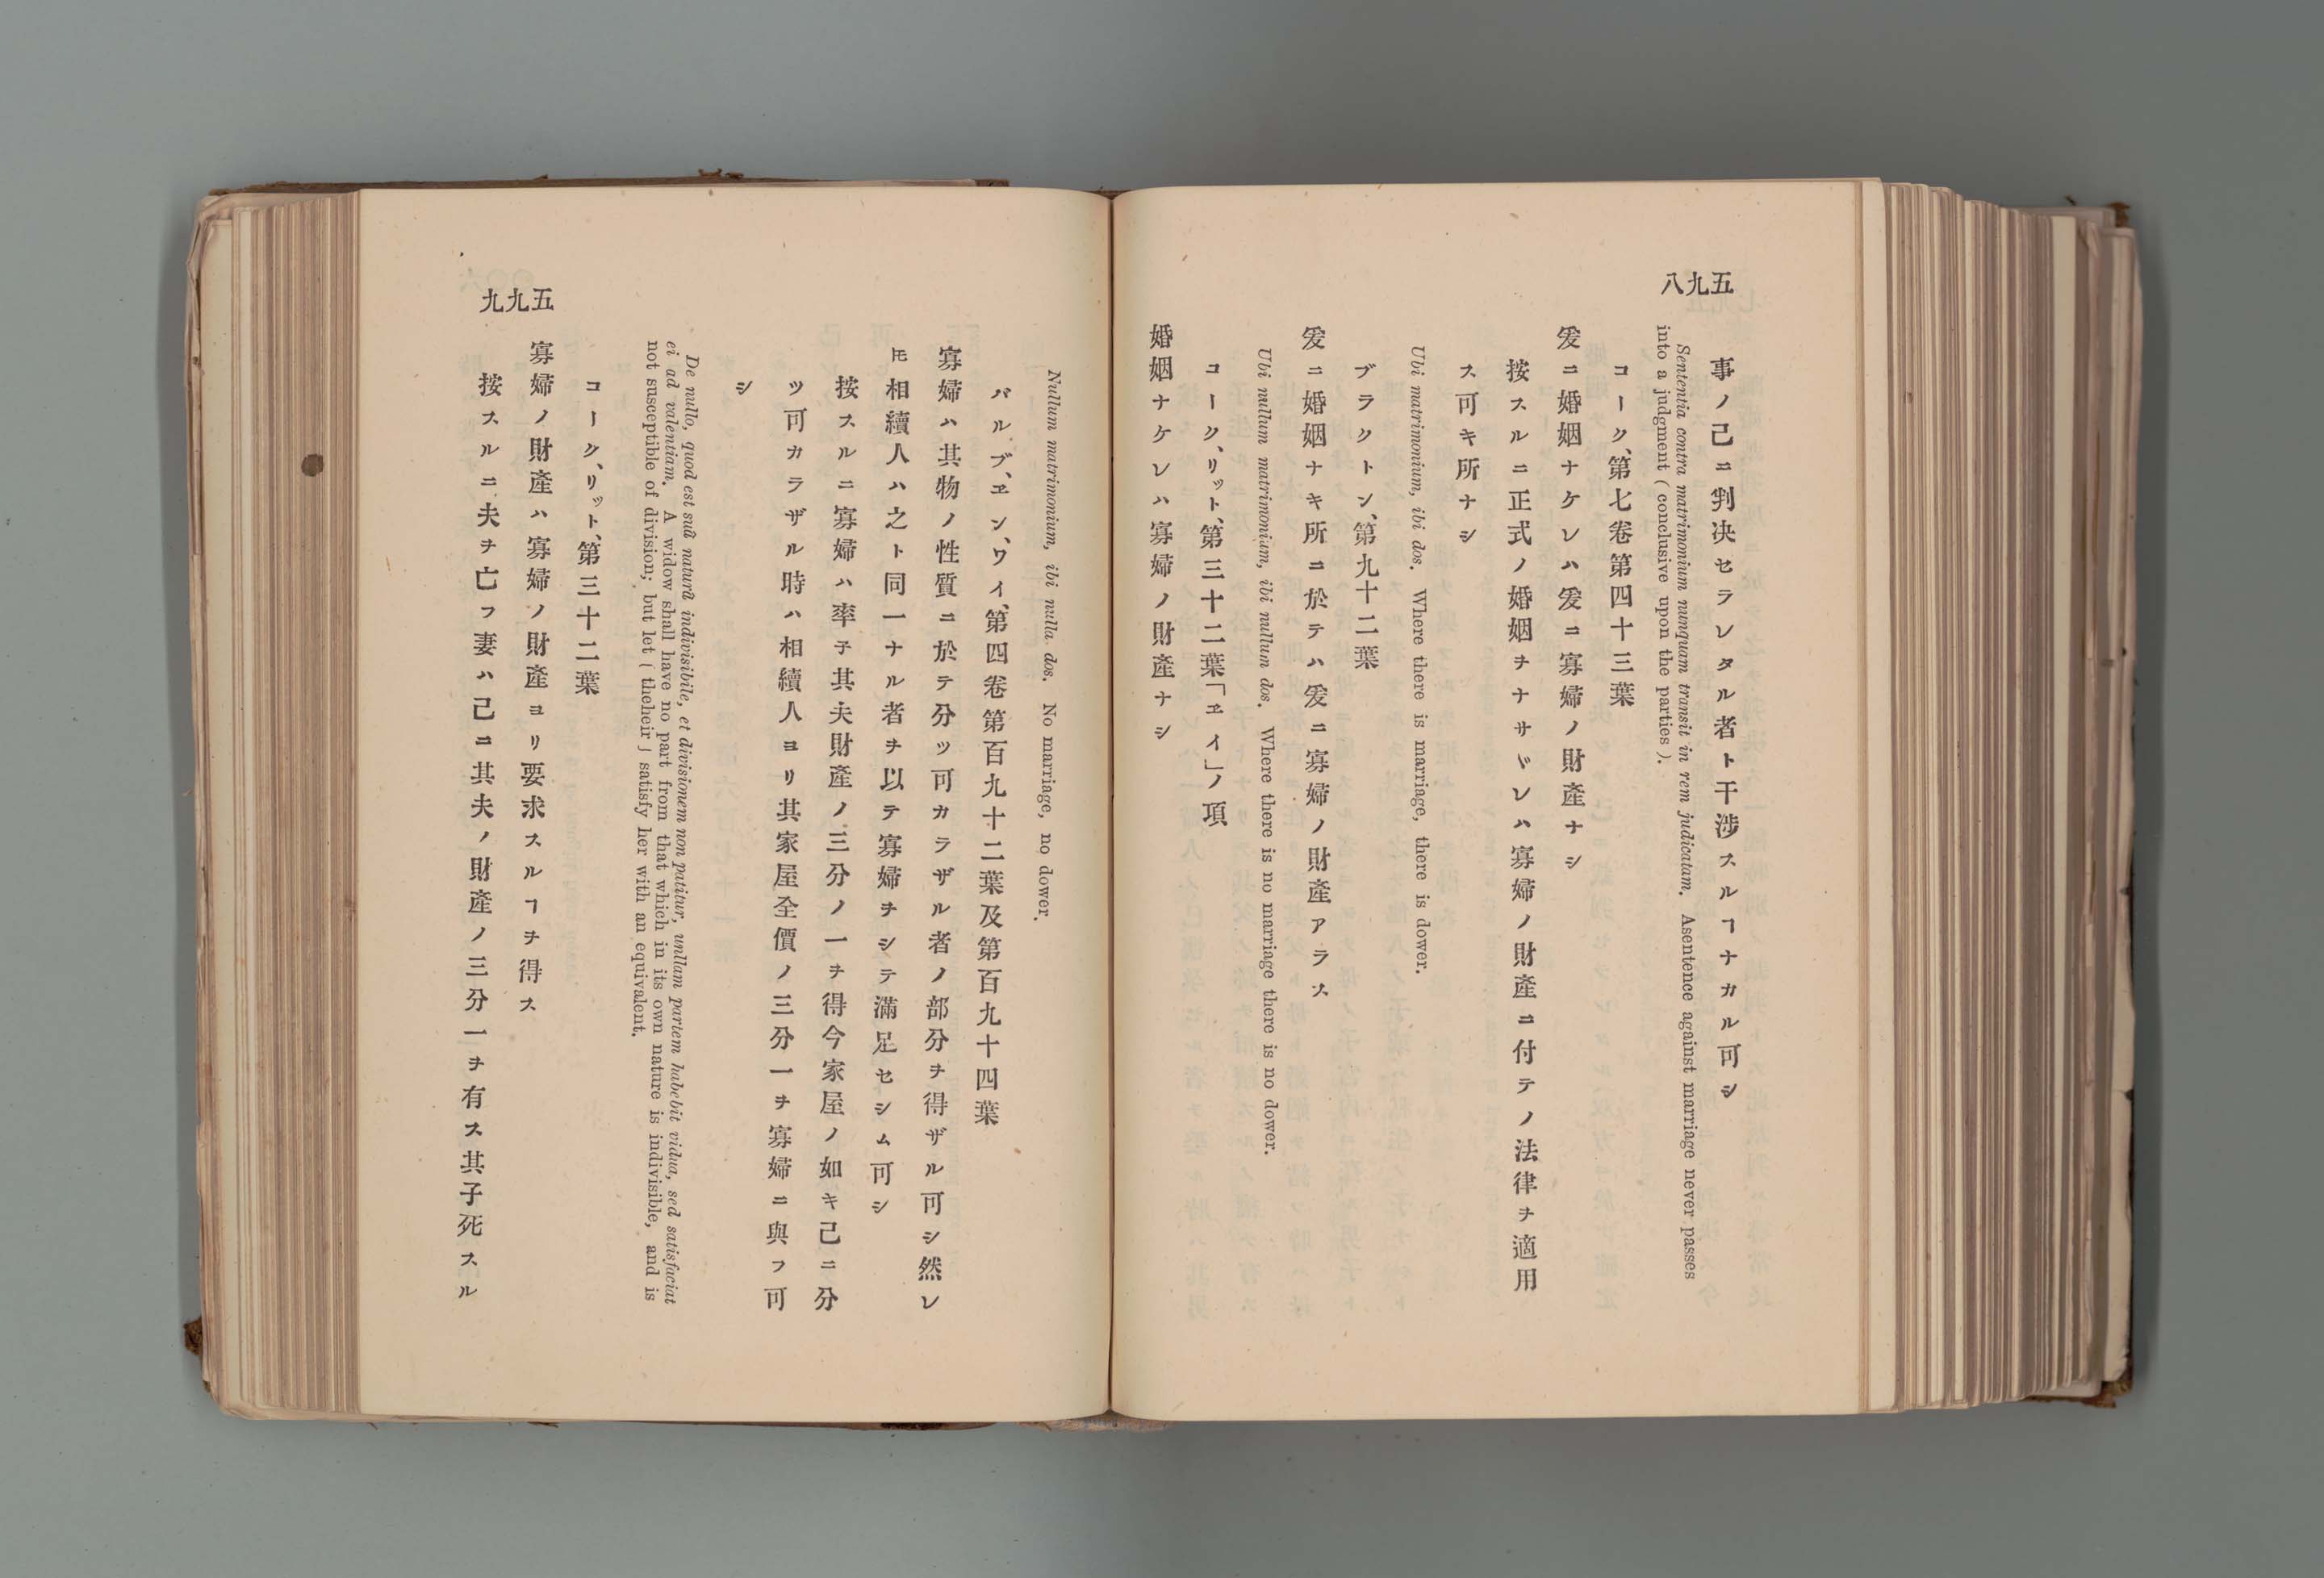 五九八
事ノ已ニ判决セラレタル者ト干渉スルヿナカル可シ
Sententia contra matrimonium nunquam transit in rem judicatam. Asentence against marriage never passes
into a judgment ( conclusive upon the parties ).
コーク、第七卷第四十三葉
爰ニ婚姻ナケレハ爰ニ寡婦ノ財產ナシ
按スルニ正式ノ婚姻ヲナサヾレハ寡婦ノ財產ニ付テノ法律ヲ適用
ス可キ所ナシ
Ubi matrimonium, ibi dos. Where there is marriage, there is dower.
ブラクトン、第九十二葉
爰ニ婚姻ナキ所ニ於テハ爰ニ寡婦ノ財產アラス
Ubi nullum matrimonium, ibi nullum dos. Where there is no marriage there is no dower.
コーク、リット、第三十二葉「ヱイ」ノ項
婚姻ナケレハ寡婦ノ財產ナシ
Nullum matrimonium, ibi nulla dos. No marriage, no dower.
バルブ、ヱン、ワイ、第四卷第百九十二葉及第百九十四葉
寡婦ハ其物ノ性質ニ於テ分ツ可カラザル者ノ部分ヲ得ザル可シ然レ
𪜈相續人ハ之ト同一ナル者ヲ以テ寡婦ヲシテ滿足セシム可シ
按スルニ寡婦ハ率子其夫財產ノ三分ノ一ヲ得今家屋ノ如キ己ニ分
ツ可カラザル時ハ相續人ヨリ其家屋全價ノ三分一ヲ寡婦ニ與フ可
シ
De nullo, quod est suâ naturâ indivisibile, et divisionem non patitur, unllam partem habebit vidua, sed satisfaciat
ei ad valentiam. A widow shall have no part from that which in its own nature is indivisible, and is
not susceptible of division; but let ( theheir ) satisfy her with an equivalent.
コーク、リット、第三十二葉
寡婦ノ財產ハ寡婦ノ財產ヨリ要求スルヿヲ得ス
按スルニ夫ヲ亡フ妻ハ己ニ其夫ノ財產ノ三分一ヲ有ス其子死スル
五九九